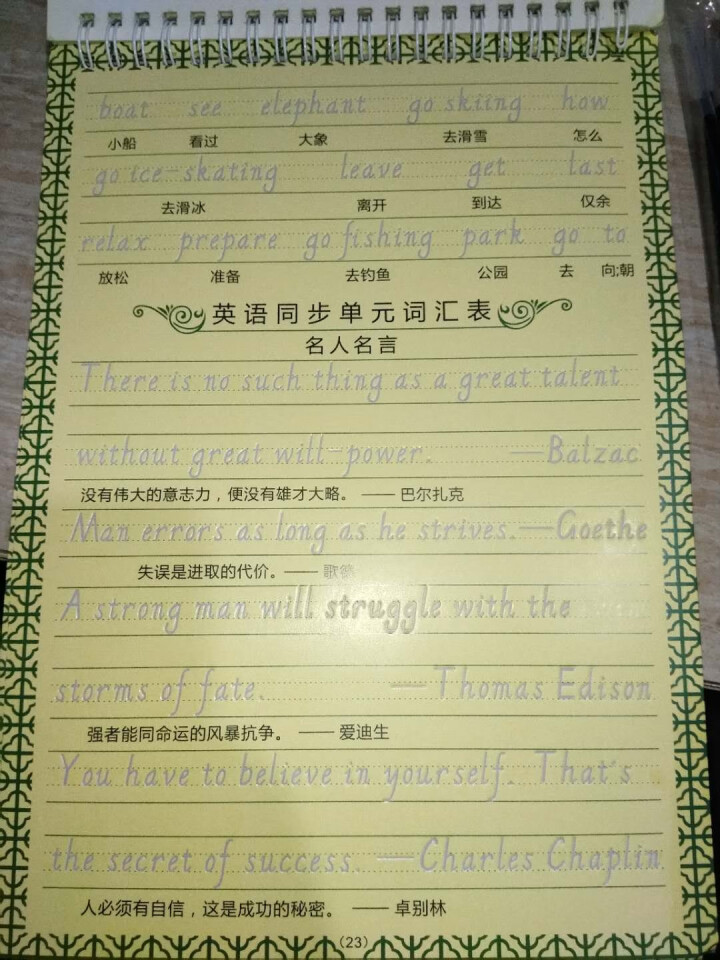 boat see elephant go skiing how
小船 看过 大象 去滑雪 怎么
go ice-skating leave get last
去滑冰 离开 到达 仅余
relax prepare go fishing park go to
放松 准备 去钓鱼 公园 去 向;朝
英语同步单元词汇表
名人名言
There is no such thing as a great talent
without great will-power. —Balzac
没有伟大的意志力，便没有雄才大略。 —— 巴尔扎克
Man errors as long as he strives.—Goethe
失误是进取的代价。—— 歌德
A strong man will struggle with the
storms of fate. —Thomas Edison
强者能同命运的风暴抗争。 —— 爱迪生
You have to believe in yourself. That's
the secret of success. —Charles Chaplin
人必须有自信，这是成功的秘密。 —— 卓别林
(23)